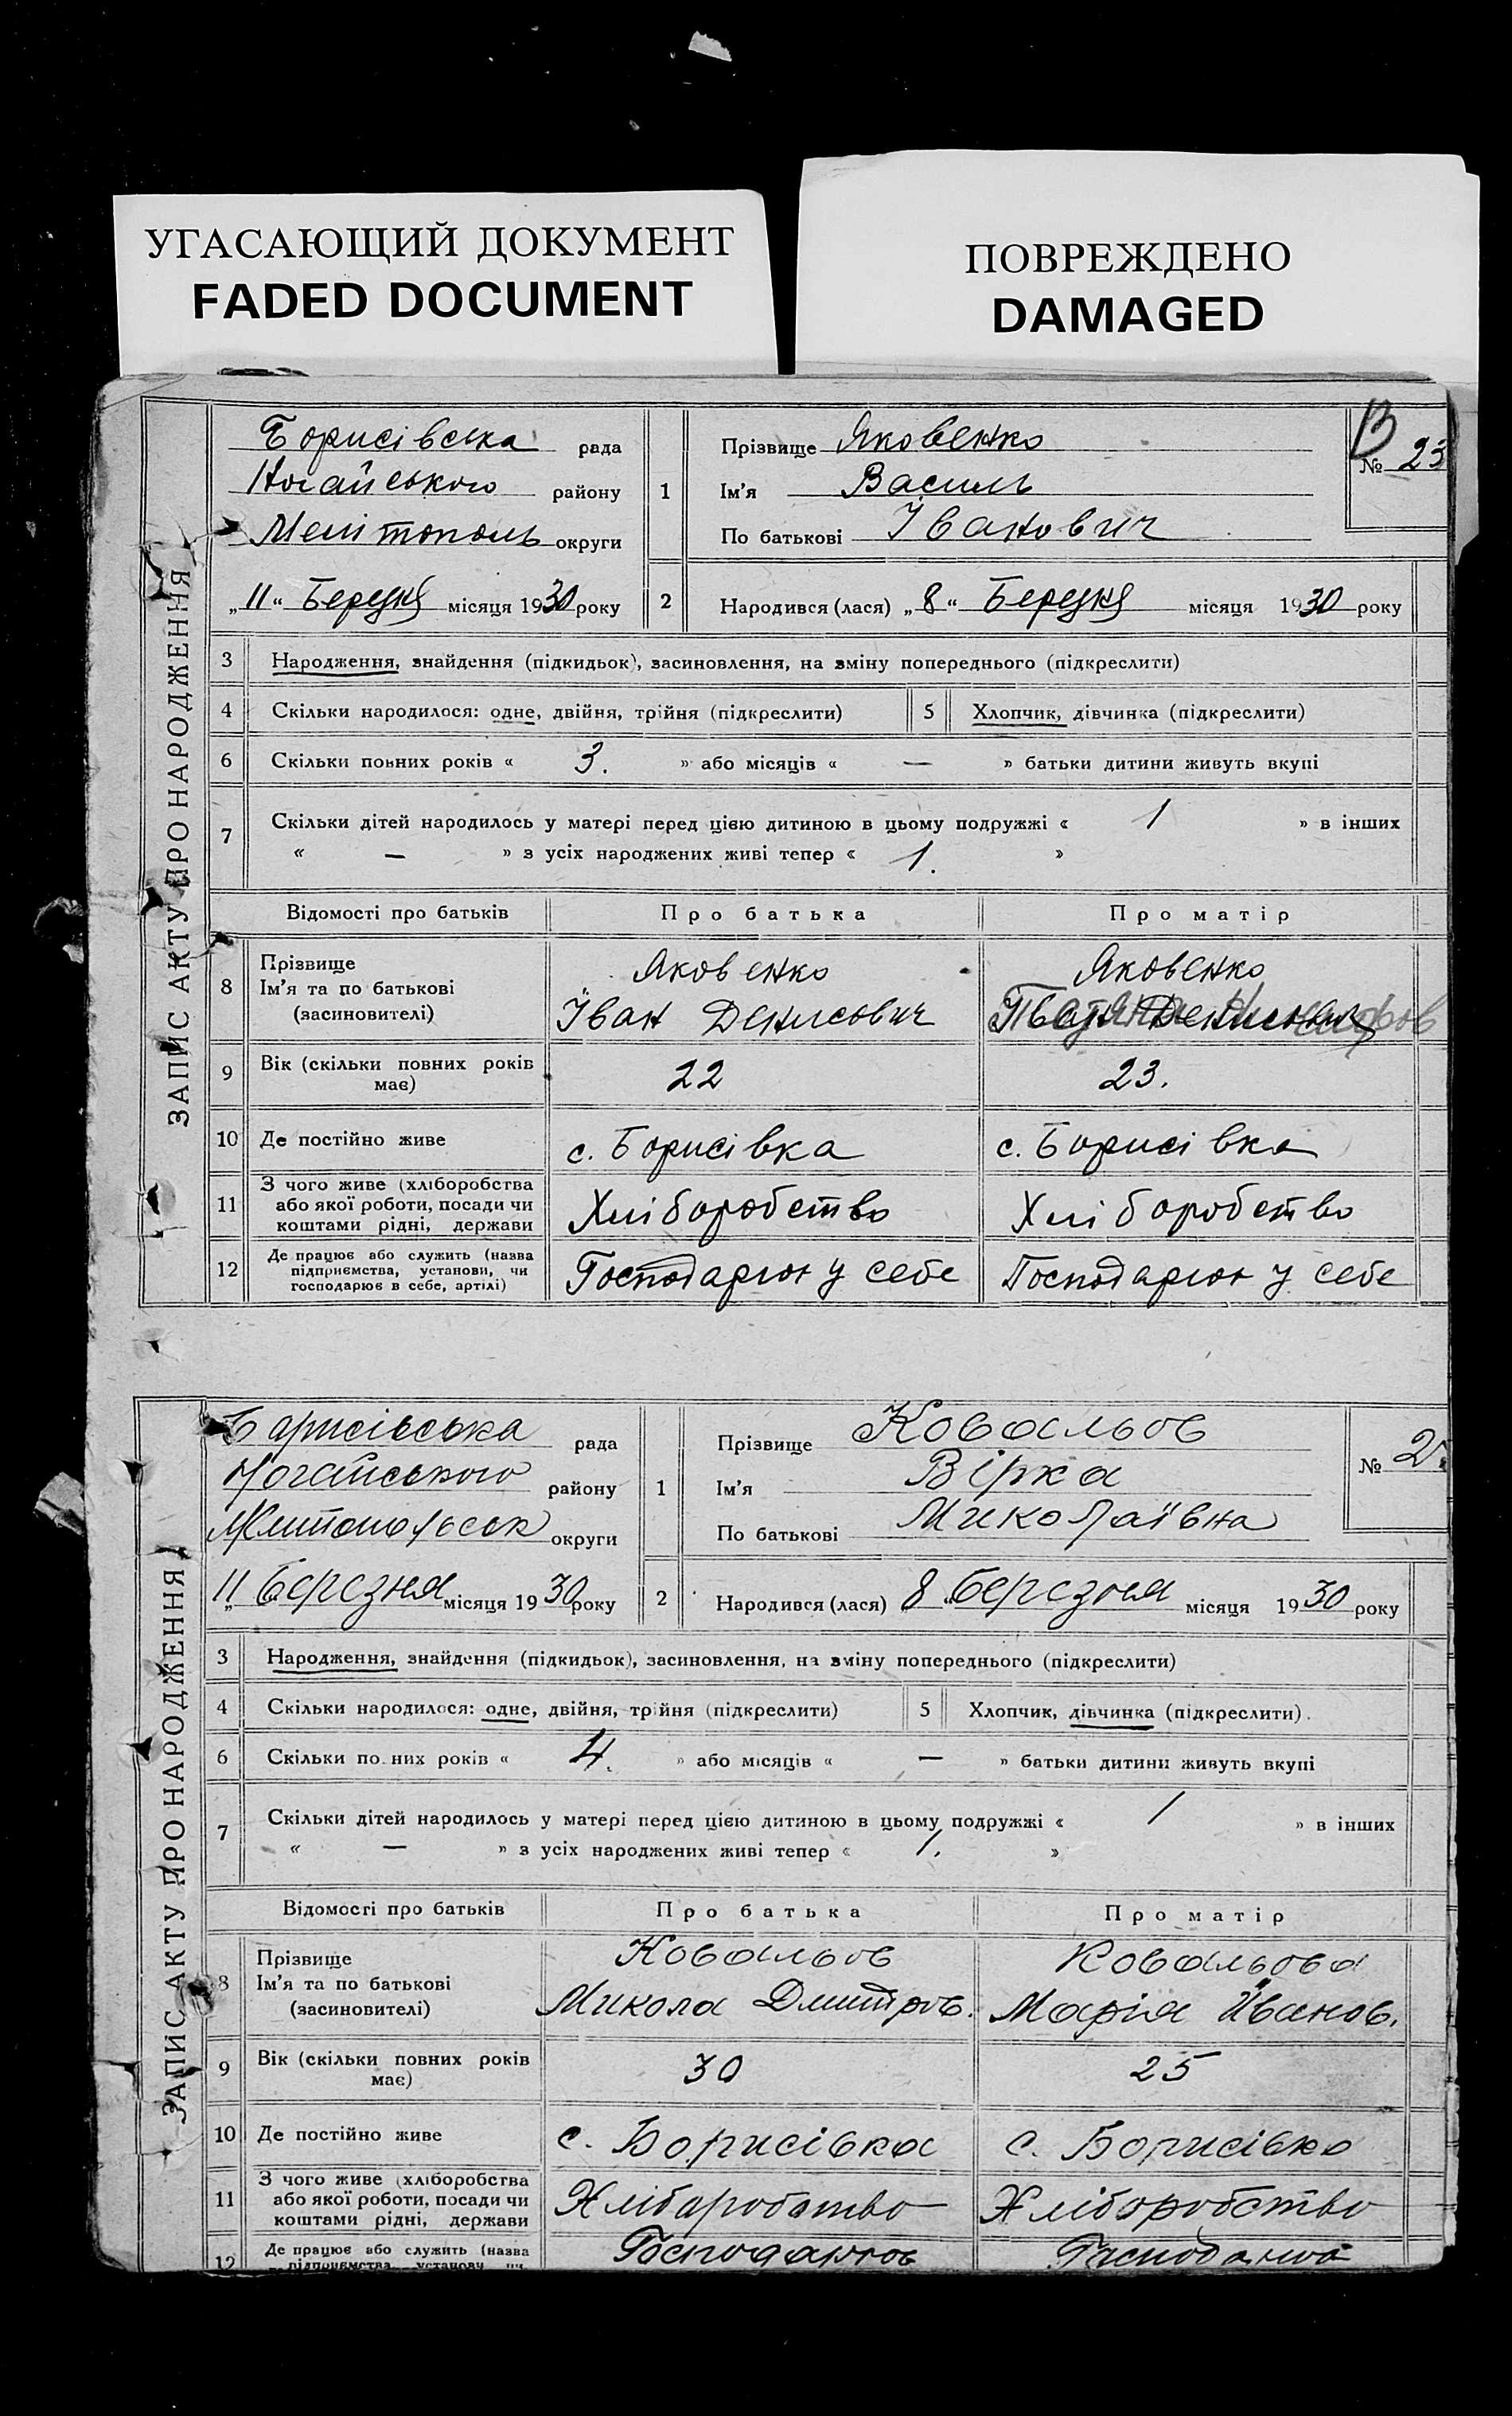 УГАСАЮЩИЙ ДОКУМЕНТ
FADED DOCUMENT
ПОВРЕЖДЕНО
DAMAGED
ЗАПИС АКТУ ПРО НАРОДЖЕННЯ
Борисівська рада
Ногайського району
Мелітополь округи
1 Прізвище Яковенко
Ім'я Василь
По батькові Іванович
№ 23
„11“ Березня місяця 1930 року
2 Народився (лася) „8“ Березня місяця 1930 року
3 Народження, знайдення (підкидьок), засиновлення, на зміну попереднього (підкреслити)
4 Скільки народилося: одне, двійня, трійня (підкреслити) 5 Хлопчик, дівчинка (підкреслити)
6 Скільки повних років « 3. » або місяців « — » батьки дитини живуть вкупі
7 Скільки дітей народилось у матері перед цією дитиною в цьому подружжі « 1 » в інших
« — » з усіх народжених живі тепер « 1. »
Відомості про батьків Про батька Про матір
8 Прізвище Яковенко Яковенко
Ім'я та по батькові
(засиновителі) Іван Денисович
9 Вік (скільки повних років
має) 22 23.
10 Де постійно живе с. Борисівка с. Борисівка
11 З чого живе (хліборобства
або якої роботи, посади чи
коштами рідні, держави Хліборобство Хліборобство
12 Де працює або служить (назва
підприємства, установи, чи
господарює в себе, артілі) Господарює у себе Господарює у себе
ЗАПИС АКТУ ПРО НАРОДЖЕННЯ
Борисівська рада
Ногайського району
округи
1 Прізвище Ковальов
Ім'я Вірка
По батькові Миколаївна
№ 2
„11 Березня місяця 1930 року
2 Народився (лася) 8 Березня місяця 1930 року
3 Народження, знайдення (підкидьок), засиновлення, на зміну попереднього (підкреслити)
4 Скільки народилося: одне, двійня, трійня (підкреслити) 5 Хлопчик, дівчинка (підкреслити)
6 Скільки повних років « 4. » або місяців « — » батьки дитини живуть вкупі
7 Скільки дітей народилось у матері перед цією дитиною в цьому подружжі « 1 » в інших
« — » з усіх народжених живі тепер « 1. »
Відомості про батьків Про батька Про матір
8 Прізвище Ковальов Ковальова
Ім'я та по батькові
(засиновителі) Микола Дмитров. Марія Іванов.
9 Вік (скільки повних років
має) 30 25
10 Де постійно живе с. Борисівка с. Борисівка
11 З чого живе (хліборобства
або якої роботи, посади чи
коштами рідні, держави Хліборобство Хліборобство
12 Де працює або служить (назва
підприємства, установи, чи